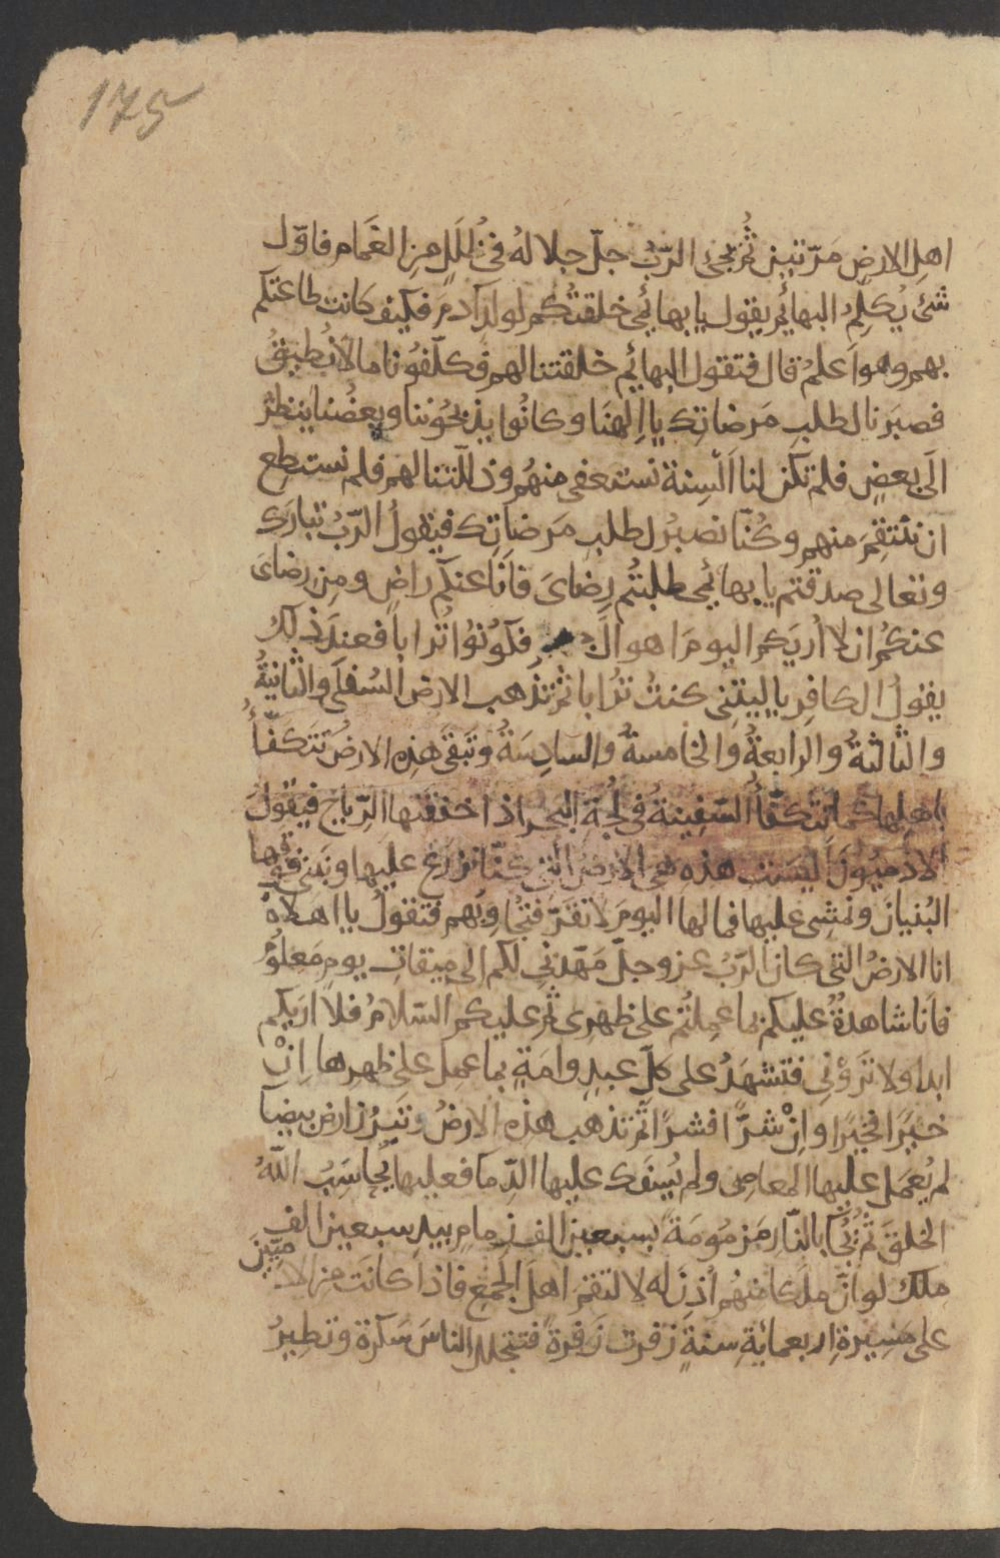 175
اهلِ الارضِ مَرّتين ثُمّ يجئ الرّبُّ جلّ جلالهُ فى ظُلَلٍ مِن الغَمام فاوّل
شئ يُكلِّمُ البهائم يقول يا بهائمى خلقتُكم لولد آدمَ فكيف كانت طاعتكم
بهم وهو اعلمُ قال فتقول البهائمُ خلقتنا لهم فكلّفُونا ما لا نُطيقُ
فصبَرنا لطلبِ مَرضاتِك يا اِلهنَا وكانُوا يذبحُوننا وبعضُنا ينظرُ
الَى بعضٍ فلم تكن لنا اَلْسِنة نستعفى منهُم وذلّلتنا لهم فلم نستطع
ان ننتقِمَ منهم وكُنّا نصبُر لطلبِ مَرضاتِك فيقولُ الرّبُّ تبارَك
وتعالى صدقتم يا بهائمى طلبتُم رِضاىَ فاَنَا عنكم راضٍ ومِن رِضاىَ
عنكُم ان لا اُريَكم اليومَ اهوال فكوُنُوا تُراباً فعندَ ذلك
يقولُ الكافِر يا ليتنِى كنتُ تُرَابا ثمّ تذهب الارضُ السُفلَى والثانيةُ
والثالثةُ والرابعةُ والخامسةُ والسادِسَةُ وتبقَى هذِه الارضُ تتكفّأُ
باهلِها كما تتكفّأُ السّفِينةُ فى لُجّة البحر اذا خفقتها الرّياح فيقولُ
الآدمِيّونَ اَليسَت هذِه هى الارضُ التى كنّا نزرَع عليها ونبنى فوقها
البُنيان ونمشِى عليها فما لها اليومَ لا تقَرّ فتُجاوِبُهم فتقولُ يا اهلاهُ
انا الارضُ التى كان الرّبُ عزوجلّ مَهّدَنِى لكم الى مِيقاتِ يومٍ مَعلُومٍ
فاَنا شاهدةٌ عليكم بما عمِلتُم على ظهرِى ثم عليكم السّلامُ فلا اَريكم
ابدا ولا تَرَوْنِى فتشهَدُ على كلِّ عبدٍ وامَةٍ بما عمِل على ظهرها اِنْ
خيرًا فخيرًا واِنْ شرًّا فشرًا ثمّ تذهب هذه الارضُ وتَبرُز ارض بيضآ
لم يُعمَل عليها المعاصِى ولم يُسفَك عليها الدِّمآ فعليها يُحاسَبُ اللّهُ
الخلقَ ثمّ يُجآ بالنّار مَزمُومَةً بسبعين الف زِمامٍ بيد سبعين الفِ
ملك لو انّ ملَكا منهُم اُذنَ له لالتقم اهلَ الجمْع فاذا كانَت مِن الآدميّينَ
على مَسِيرةِ اربعمائةِ سنةٍ زفرت زَفرةً فتتجلل الناسَ سَكرة وتطِيرُ